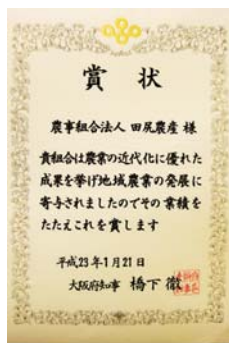 賞状
農事組合法人 田尻農産 様
貴組合は農業の近代化に優れた
成果を挙げ地域農業の発展に
寄与されましたのでその業績を
たたえこれを賞します
平成23年1月21日
大阪府知事 橋下 徹